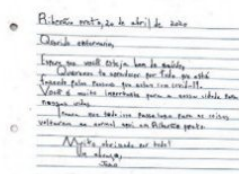 Ribeirão preto, 20 de abril de 2020
Querido enfermeiro,
Espero que você esteja bem de saúde,
Queremos te agradecer por tudo que está
fazendo pelas pessoas que estão com covid-19.
Você é muito importante para a nossa cidade para
nossas vidas
que tudo isso passe logo para as coisas
voltarem ao normal aqui em Ribeirão preto.
Muito obrigado por tudo!
Um abraço,
João